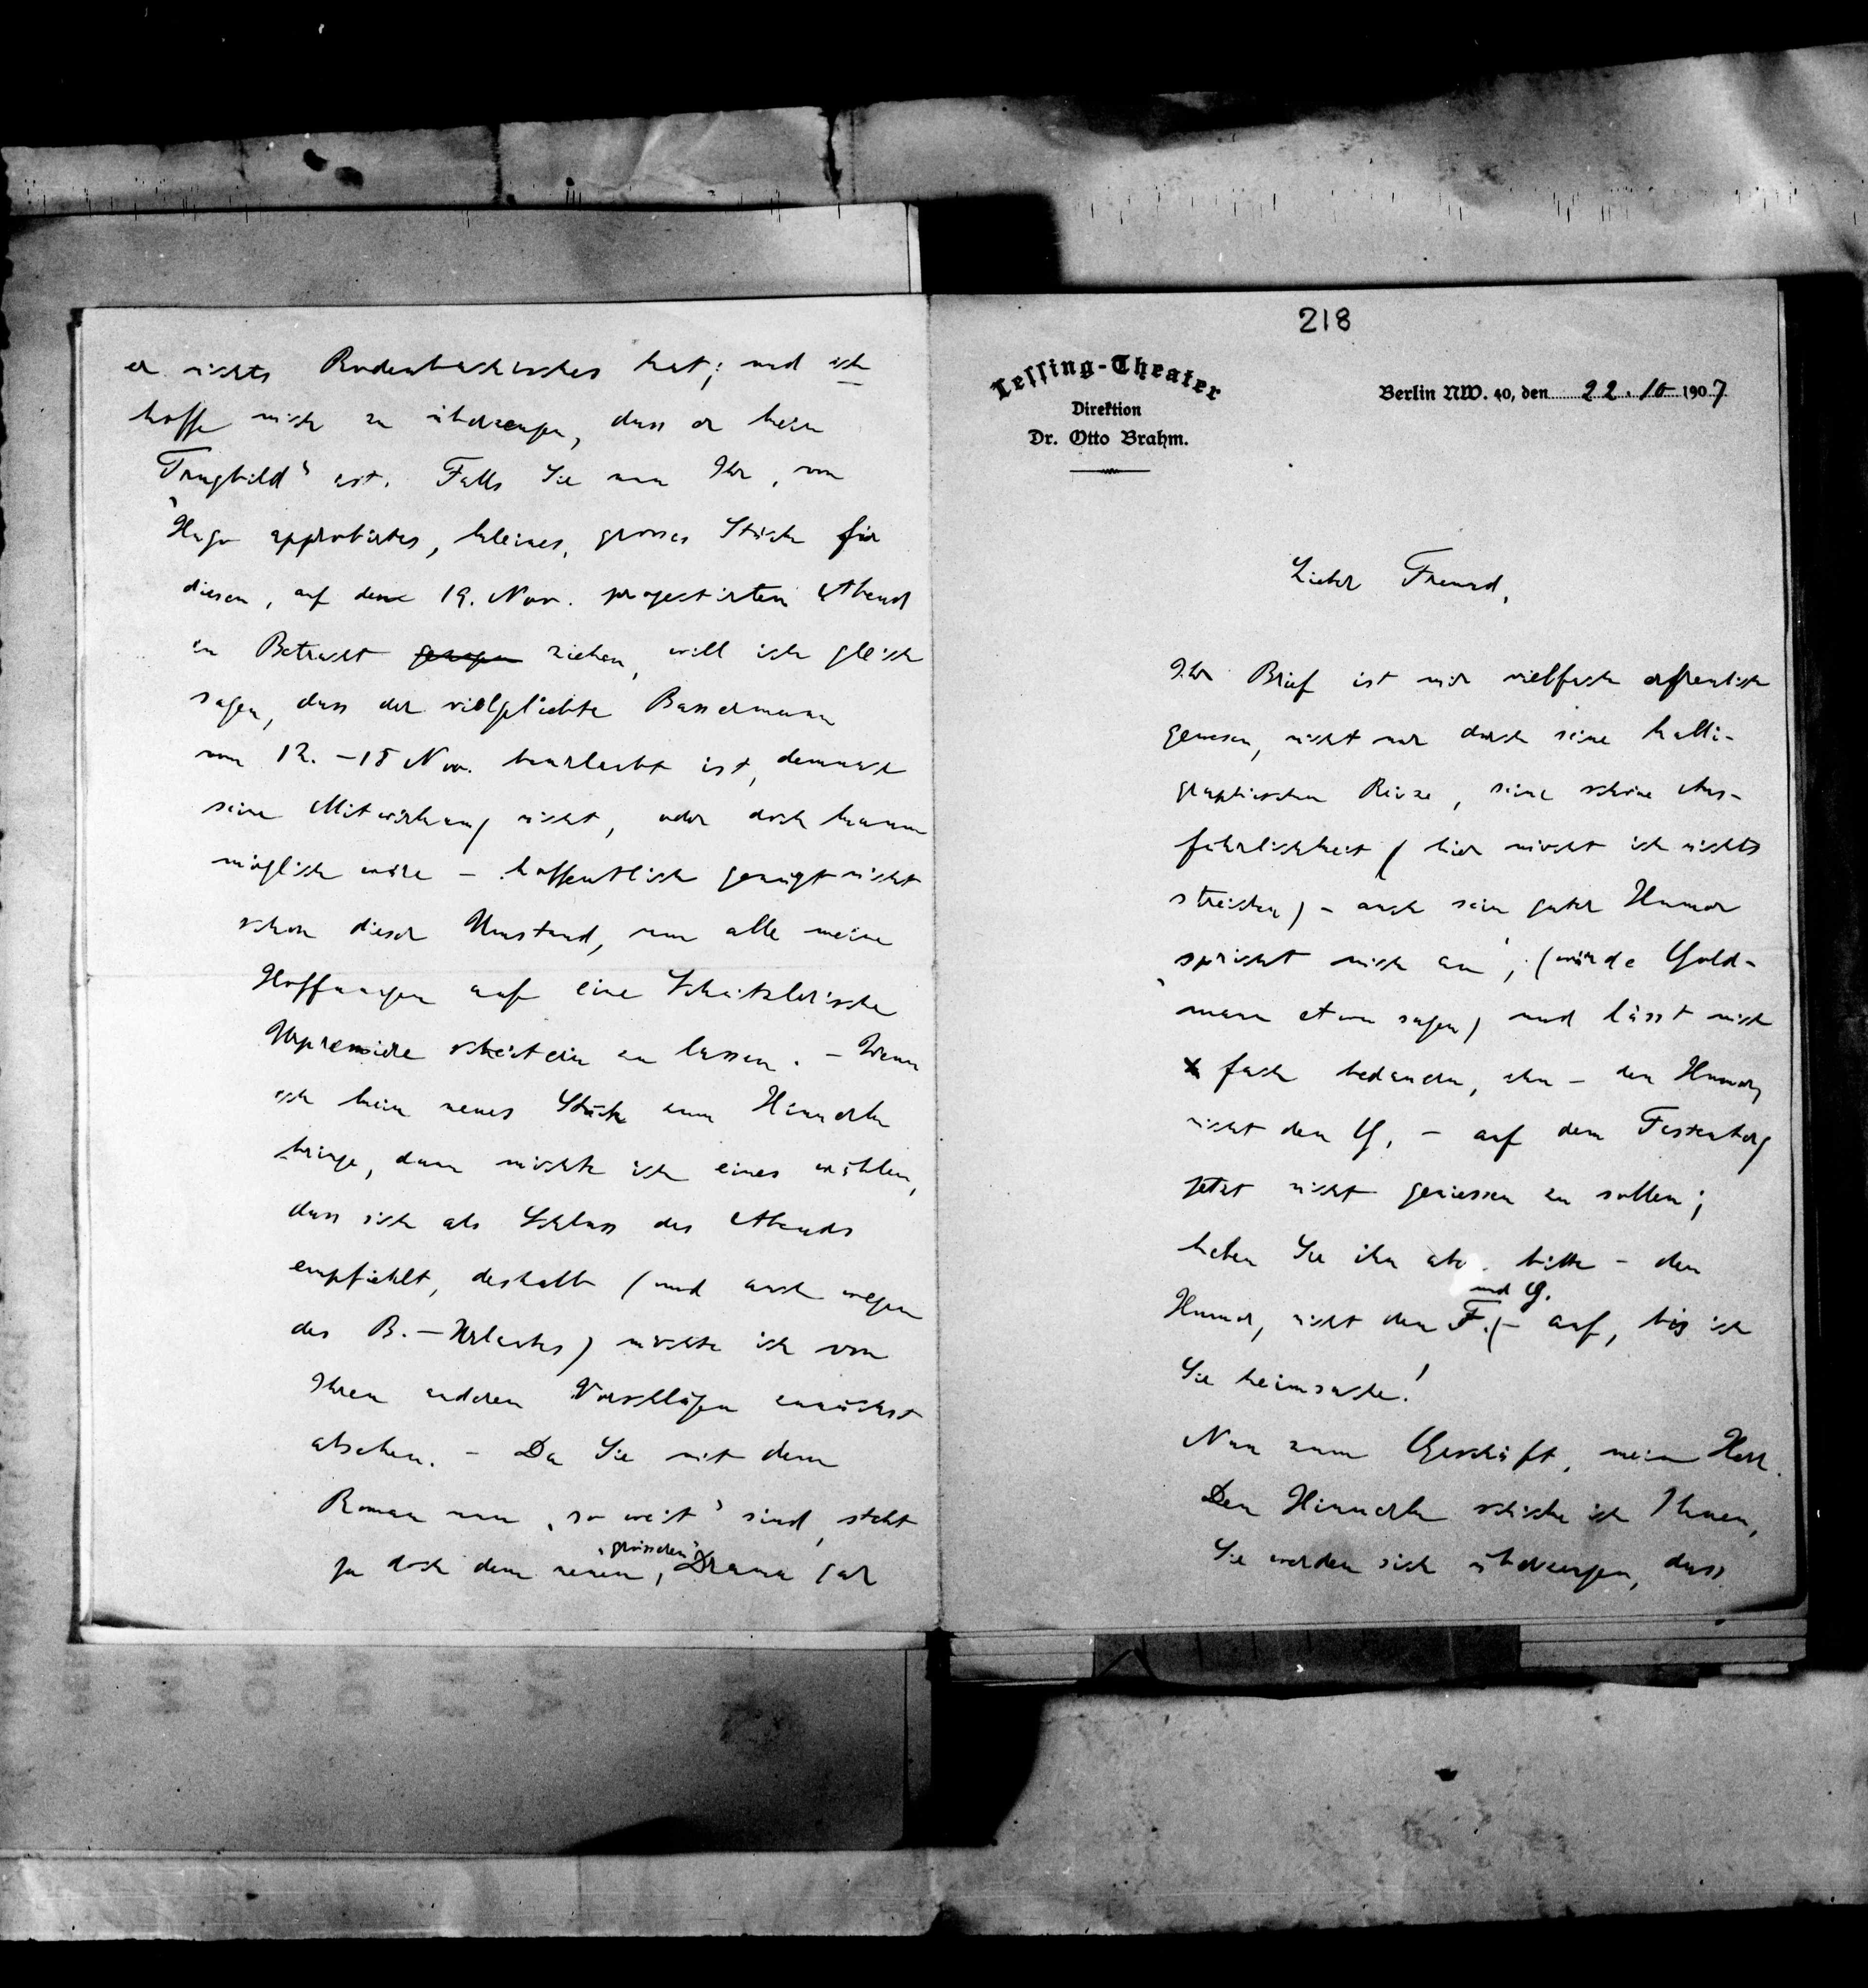 218
Lessing-Theater
Direktion
Dr. Otto Brahm.
Berlin NW. 40, den 22.10.1907
Lieber Freund,
Ihr Brief ist mir vielfach erfreulich
gewesen, nicht nur durch seine kalli-
graphischen Reize, seine schöne Aus-
führlichkeit (hier möcht ich nichts
streichen) – auch sein guter Humor
‚spricht mich an‘, (würde Gold-
mann etwa sagen) und lässt mich
fast bedauern, ihn – den Humor,
nicht den G. – auf dem Festenberg
jetzt nicht geniessen zu sollen;
heben Sie ihn aber bitte – den
Humor, nicht den F. und G. – auf, bis ich
Sie heimsuche!
Nun zum Geschäft, mein Herr.
Den Hinnerk schicke ich Ihnen,
Sie werden sich überzeugen, dass
er nichts Rodenbachisches hat; und ich
hoffe mich zu überzeugen, dass er kein
‚Trugbild‘ ist. Falls Sie nun Ihr, von
Hugo approbirtes, kleines, grosses Stück für
diesen, auf den 19. Nov. projectirten Abend
in Betracht gezogen ziehen, will ich gleich
sagen, dass der vielgeliebte Bassermann
vom 12.–18 Nov. beurlaubt ist, demnach
seine Mitwirkung nicht, oder doch kaum
möglich wäre – hoffentlich genügt nicht
schon dieser Umstand, um alle meine
Hoffnungen auf eine Schnitzlerische
Urpremiere scheitern zu lassen. – Wenn
ich kein neues Stück zum Hinnerk
bringe, dann möchte ich eines wählen,
dass sich als Schluss des Abends
empfiehlt, deshalb (und auch wegen
des B.–Urlaubs) möchte ich von
Ihren anderen Vorschlägen zunächst
absehen. – Da Sie mit dem
Roman nun ‚so weit‘ sind, steht
ja doch dem neuen, ‚grösseren‘ Drama (ar